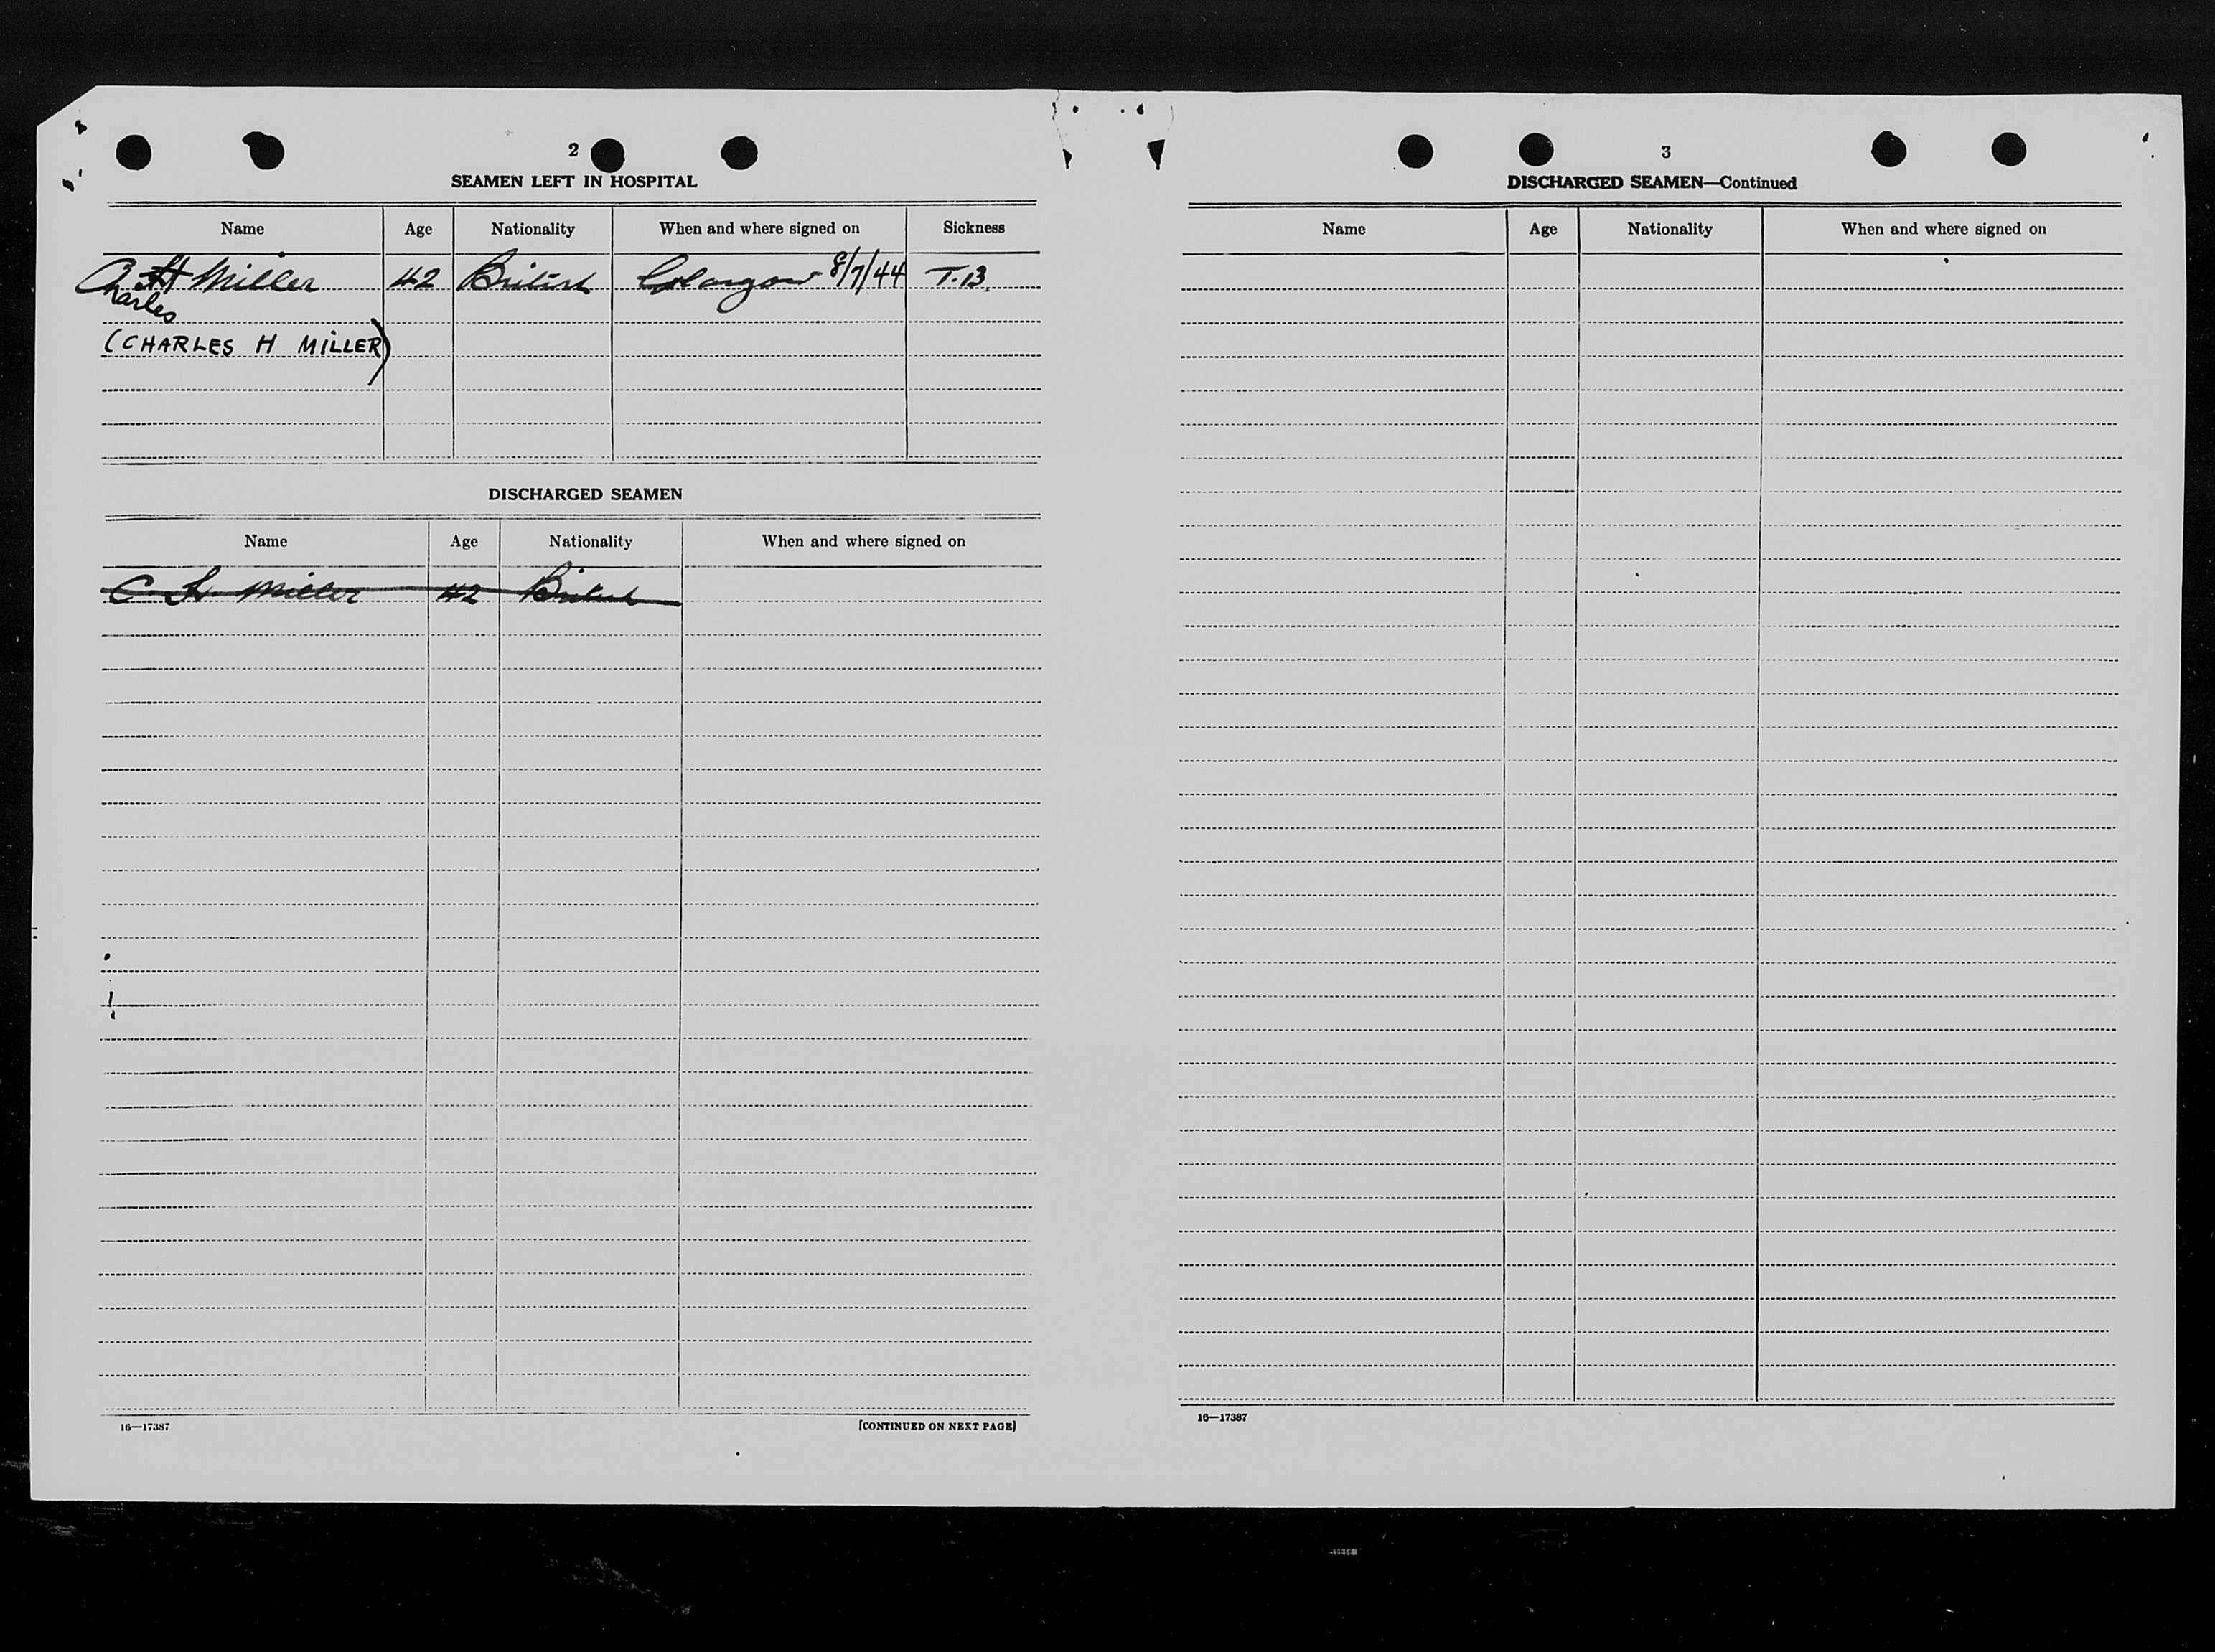 2
SEAMEN LEFT IN HOSPITAL
Name Age Nationality When and where signed on Sickness
C H Miller 42 British Glasgow 8/7/44 T.B.
Charles
(CHARLES H MILLER)
DISCHARGED SEAMEN
Name Age Nationality When and where signed on
C. H. Miller 42 British
16—17387 [CONTINUED ON NEXT PAGE]
3
DISCHARGED SEAMEN—Continued
Name Age Nationality When and where signed on
16—17387